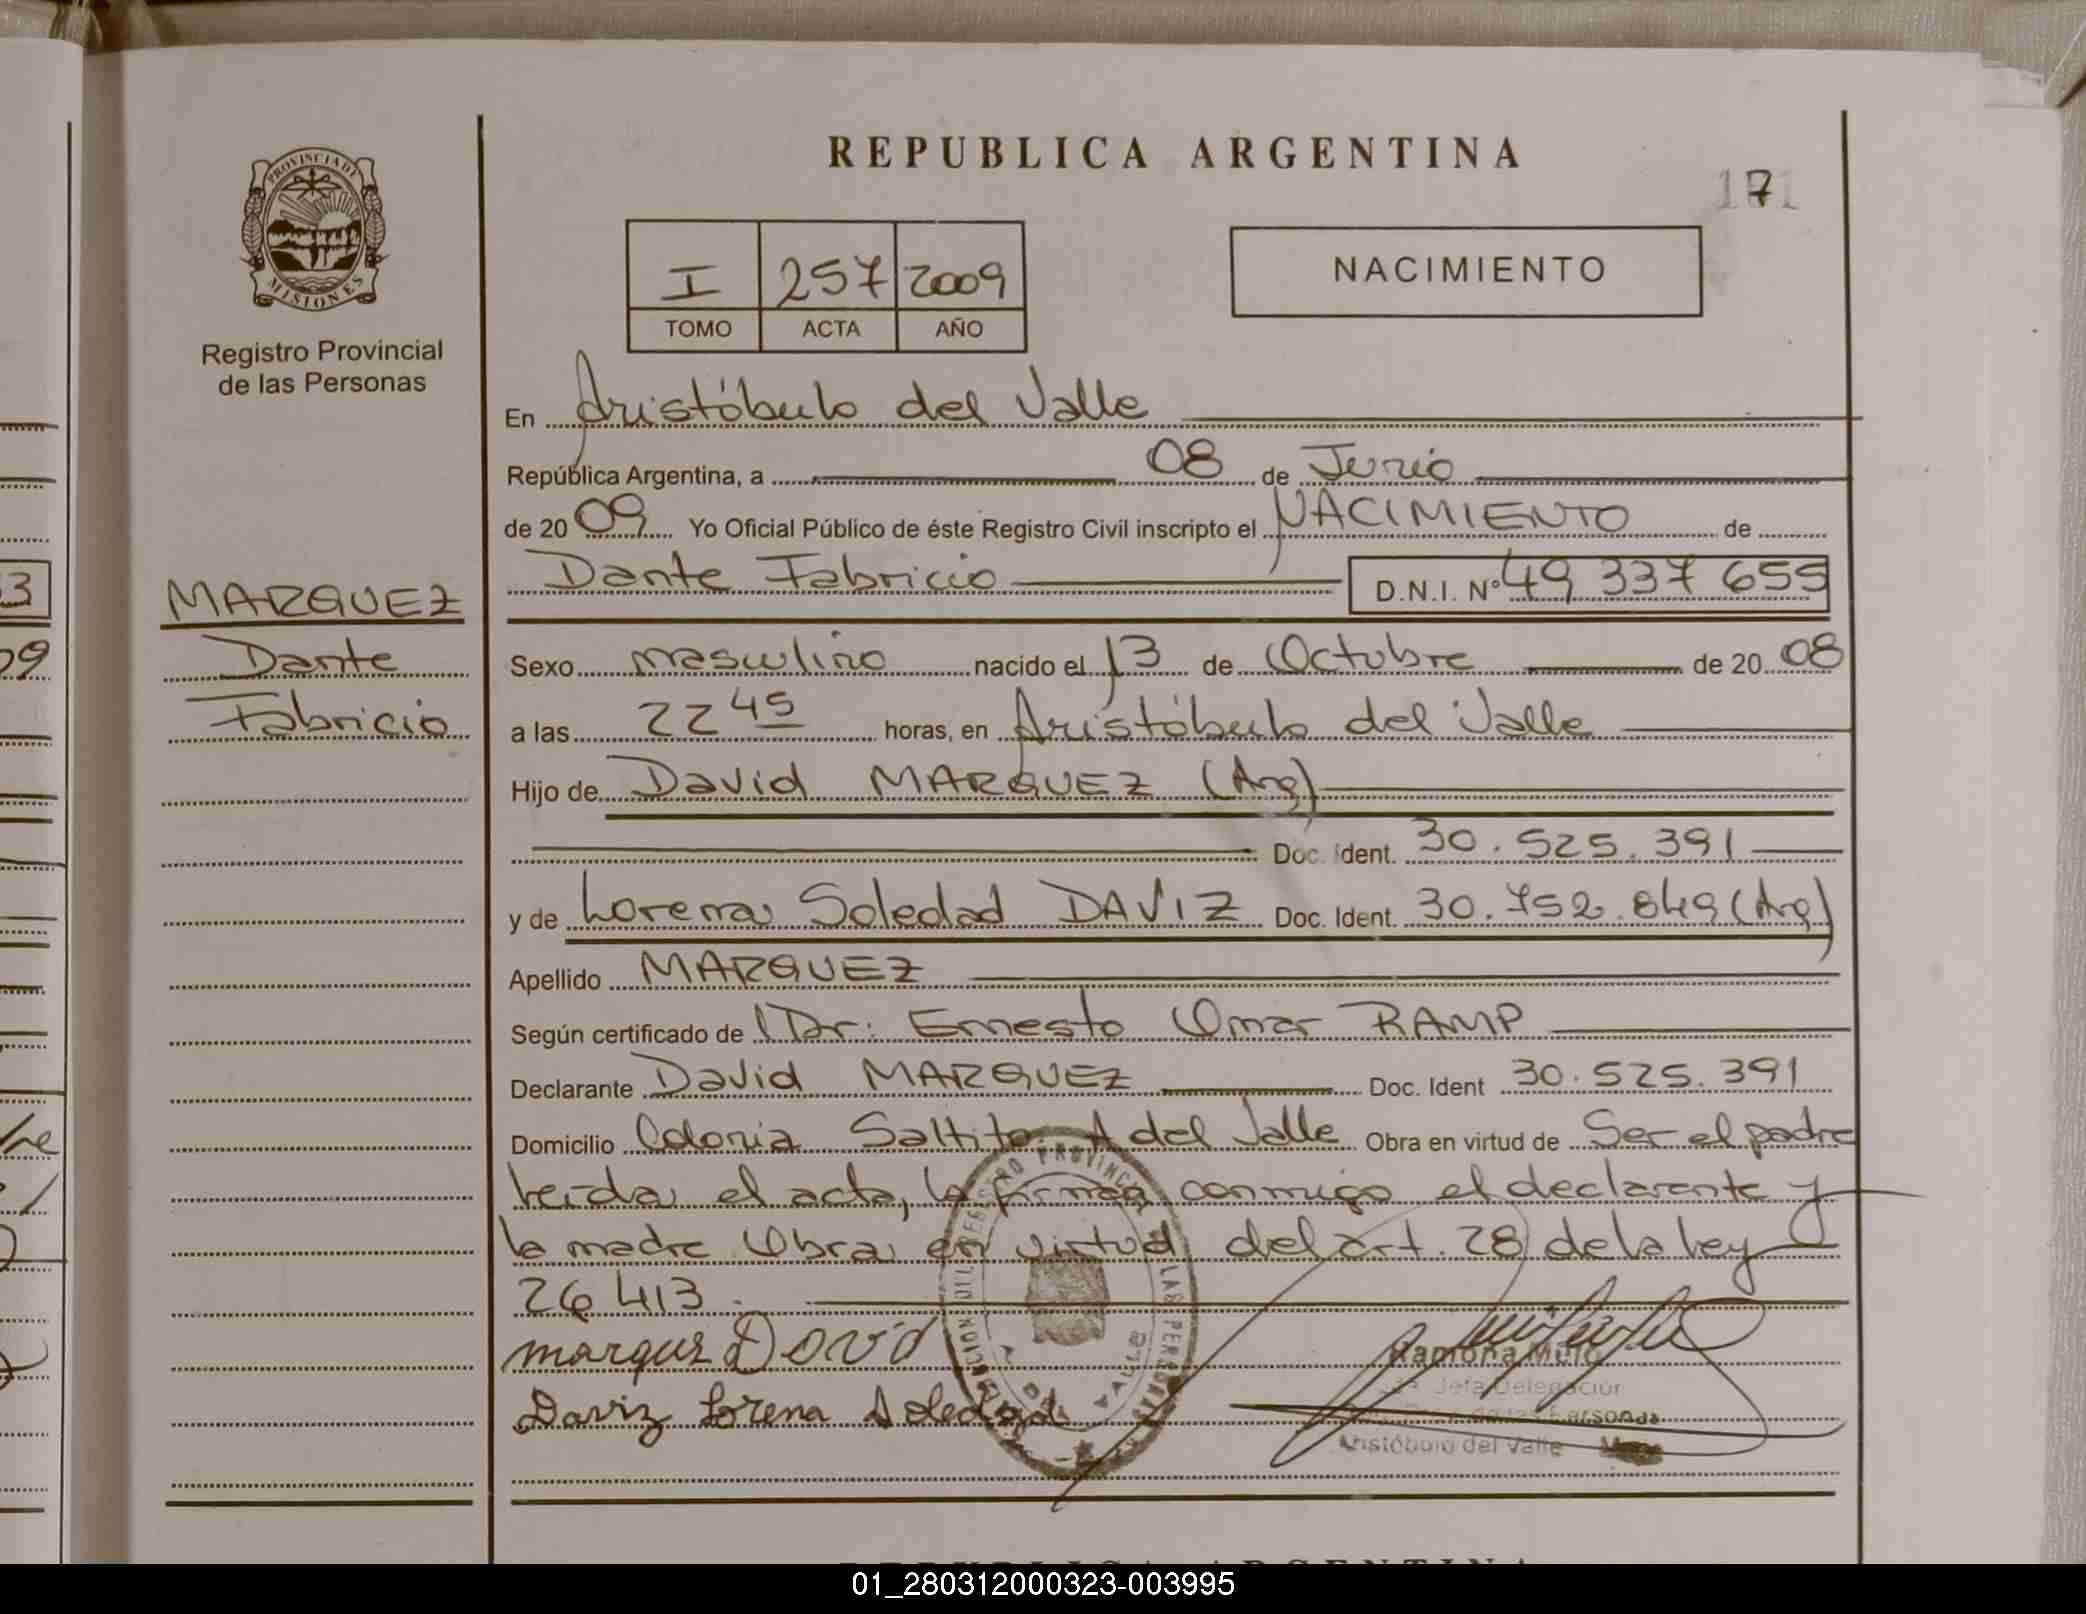 REPUBLICA ARGENTINA
PROVINCIA DE
MISIONES
Registro Provincial
de las Personas
I 257 2009
TOMO ACTA AÑO
NACIMIENTO
En Aristóbulo del Valle
República Argentina, a 08 de Junio
de 2009 Yo Oficial Público de éste Registro Civil inscripto el NACIMIENTO de
Dante Fabricio D.N.I. Nº 49 337 655
MARQUEZ
Dante
Fabricio
Sexo masculino nacido el 13 de Octubre de 2008
a las 22 45 horas, en Aristóbulo del Valle
Hijo de David MARQUEZ (Arg)
Doc. Ident. 30.525.391
y de Lorena Soledad DAVIZ Doc. Ident. 30.752.849 (Arg)
Apellido MARQUEZ
Según certificado de Dr: Ernesto Omar RAMP
Declarante David MARQUEZ Doc. Ident 30.525.391
Domicilio Colonia Saltito A del Valle Obra en virtud de Ser el padre
Leida el acta, la firman conmigo el declarante y
la madre Obra en virtud del art. 28 de la ley
26 413.
marquez David
Daviz Lorena Soledad
Ramona Melo
Jefa Delegación
de las Personas
Aristóbulo del Valle
01_280312000323-003995